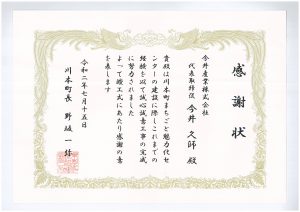 感謝状
今井産業株式会社
代表取締役 今井久師 殿
貴殿は川本町まちごと魅力化セ
ンターの建設に際しこれまでの
経験を以て誠心誠意工事の完成
に努力されました
よって竣工式にあたり感謝の意
を表します
令和二年七月十五日
川本町長 野坂一弥